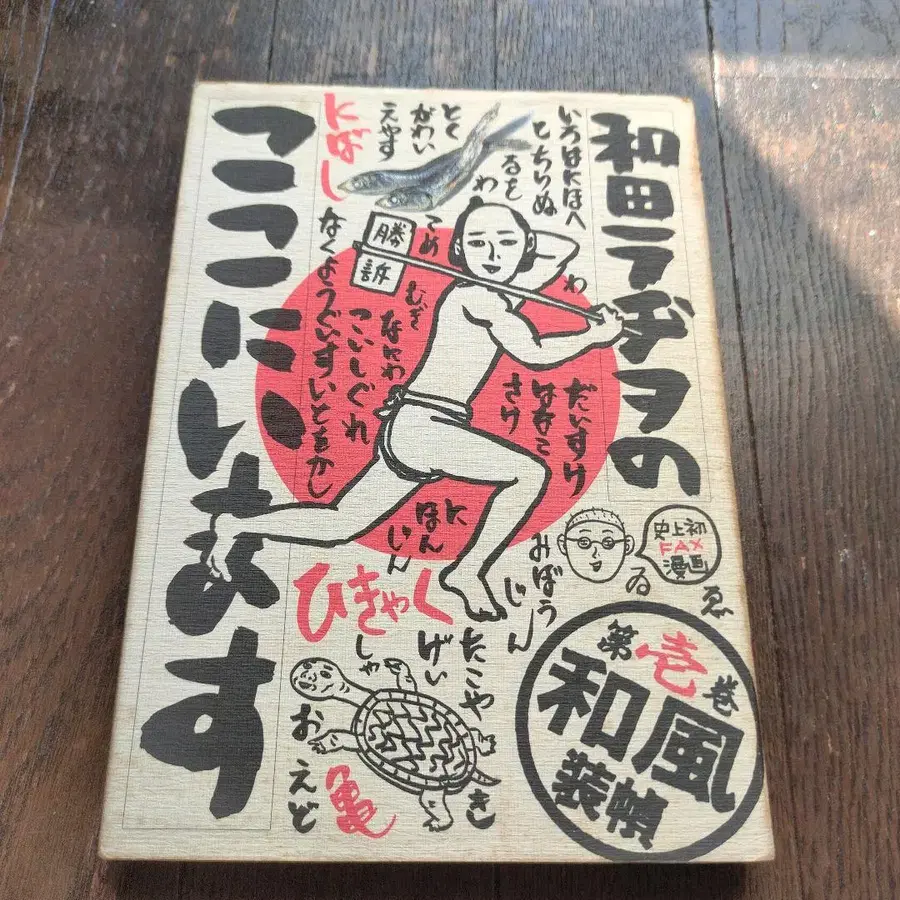 和田ラヂヲの
ここにいます
いろはにほへ
とちりぬ
るをわ
とく
がわい
えやす
にぼし
勝
訴
てめ
わ
むぎ
なにわ
こいしぐれ
なくようぐいすいとをかし
だいすけ
はなこ
さけ
にほんじん
みぼうじん
史上初
FAX
漫画
ゐ
ゑ
ひきゃく
たこや
き
げい
しゃ
お
えど
亀
第壱巻
和風
装幀